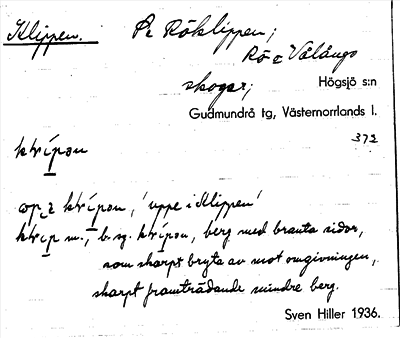 Klippen. Se Röklippen;
Rö c Välångs
skogar; Högsjö s:n
Gudmundrå tg, Västernorrlands l.
372
klípən
klípən, 'uppe i Klippen'
m., b. sg. klípən, berg med branta sidor,
som skarpt bryta av mot omgivningen,
skarpt framträdande mindre berg.
Sven Hiller 1936.